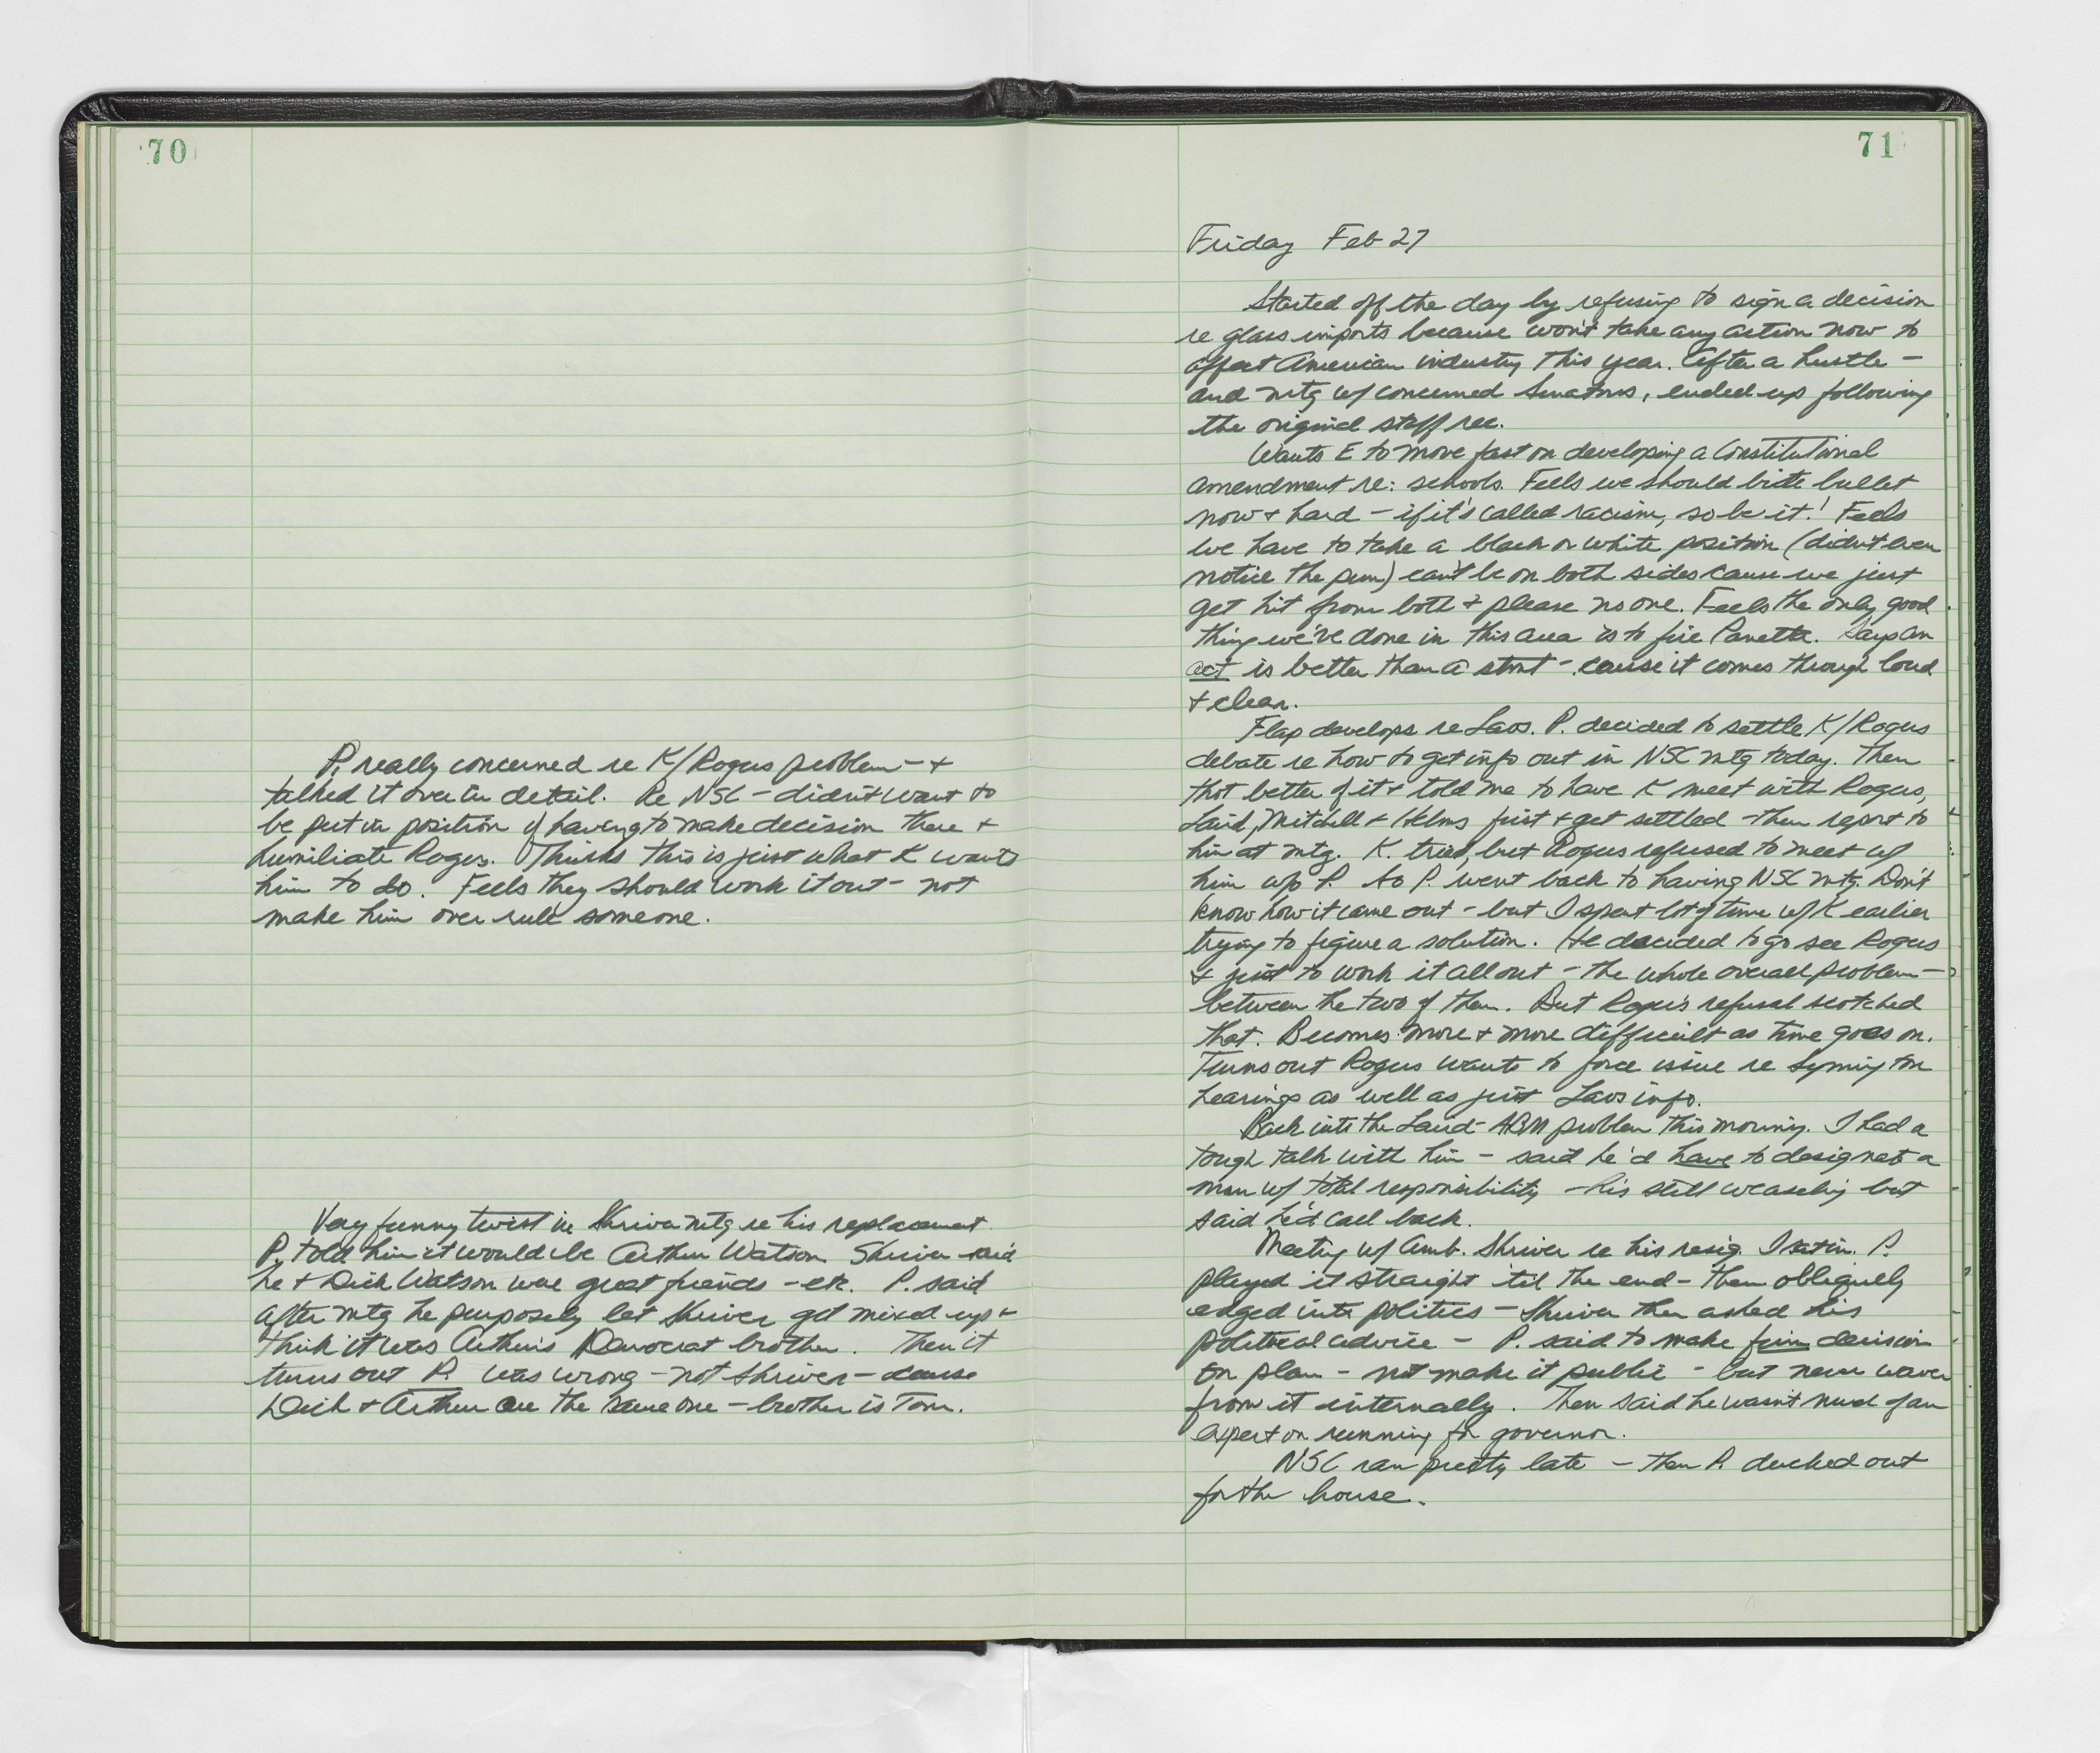 70
P. really concerned re K/Rogers problem - +
talked it over in detail. Re NSC - didn't want to
be put in position of having to make decision there +
humiliate Rogers. Thinks this is just what K wants
him to do. Feels they should work it out - not
make him over rule someone.
Very funny twist in Shriver mtg re his replacement.
P. told him it would be Arthur Watson Shriver said
he + Dick Watson were great friends - etc. P. said
after mtg he purposely let Shriver get mixed up +
think it was Arthur's Democrat brother. Then it
turns out P. was wrong - not Shriver - cause
Dick + Arthur are the same one - brother is Tom.
71
Friday Feb 27
Started off the day by refusing to sign a decision
re glass imports because won't take any action now to
affect American industry this year. After a hustle -
and mtg w/ concerned Senators, ended up following
the original staff rec.
Wants E to move fast on developing a Constitutional
amendment re: schools. Feels we should bite bullet
now + hard - if it's called racism, so be it! Feels
we have to take a black or white position (didn't even
notice the pun) can't be on both sides cause we just
get hit from both + please no one. Feels the only good
thing we've done in this area is to fire Panetta. Says an
act is better than a stmt - cause it comes through loud
+ clear.
Flap develops re Laos. P. decided to settle K/Rogers
debate re how to get info out in NSC mtg today. Then
thot better of it + told me to have K meet with Rogers,
Laird, Mitchell + Helms first + get settled - then report to
him at mtg. K. tried, but Rogers refused to meet w/
him w/o P. So P. went back to having NSC mtg. Don't
know how it came out - but I spent lot of time w/ K earlier
trying to figure a solution. He decided to go see Rogers
+ just to work it all out - the whole overall problem -
between the two of them. But Rogers refusal scotched
that. Becomes more + more difficult as time goes on.
Turns out Rogers wants to force issue re Symington
hearings as well as just Laos info.
Back into the Laird - ABM problem this morning. I had a
tough talk with him - said he'd have to designate a
man w/ total responsibility - he's still weaseling but
said he'd call back.
Meeting w/ Amb. Shriver re his resig. I sat in. P.
played it straight 'til the end - then obliquely
edged into politics - Shriver then asked his
political advice - P. said to make firm decision
on plan - not make it public - but never waver
from it internally. Then said he wasn't much of an
expert on running for governor.
NSC ran pretty late - then P. ducked out
for the house.